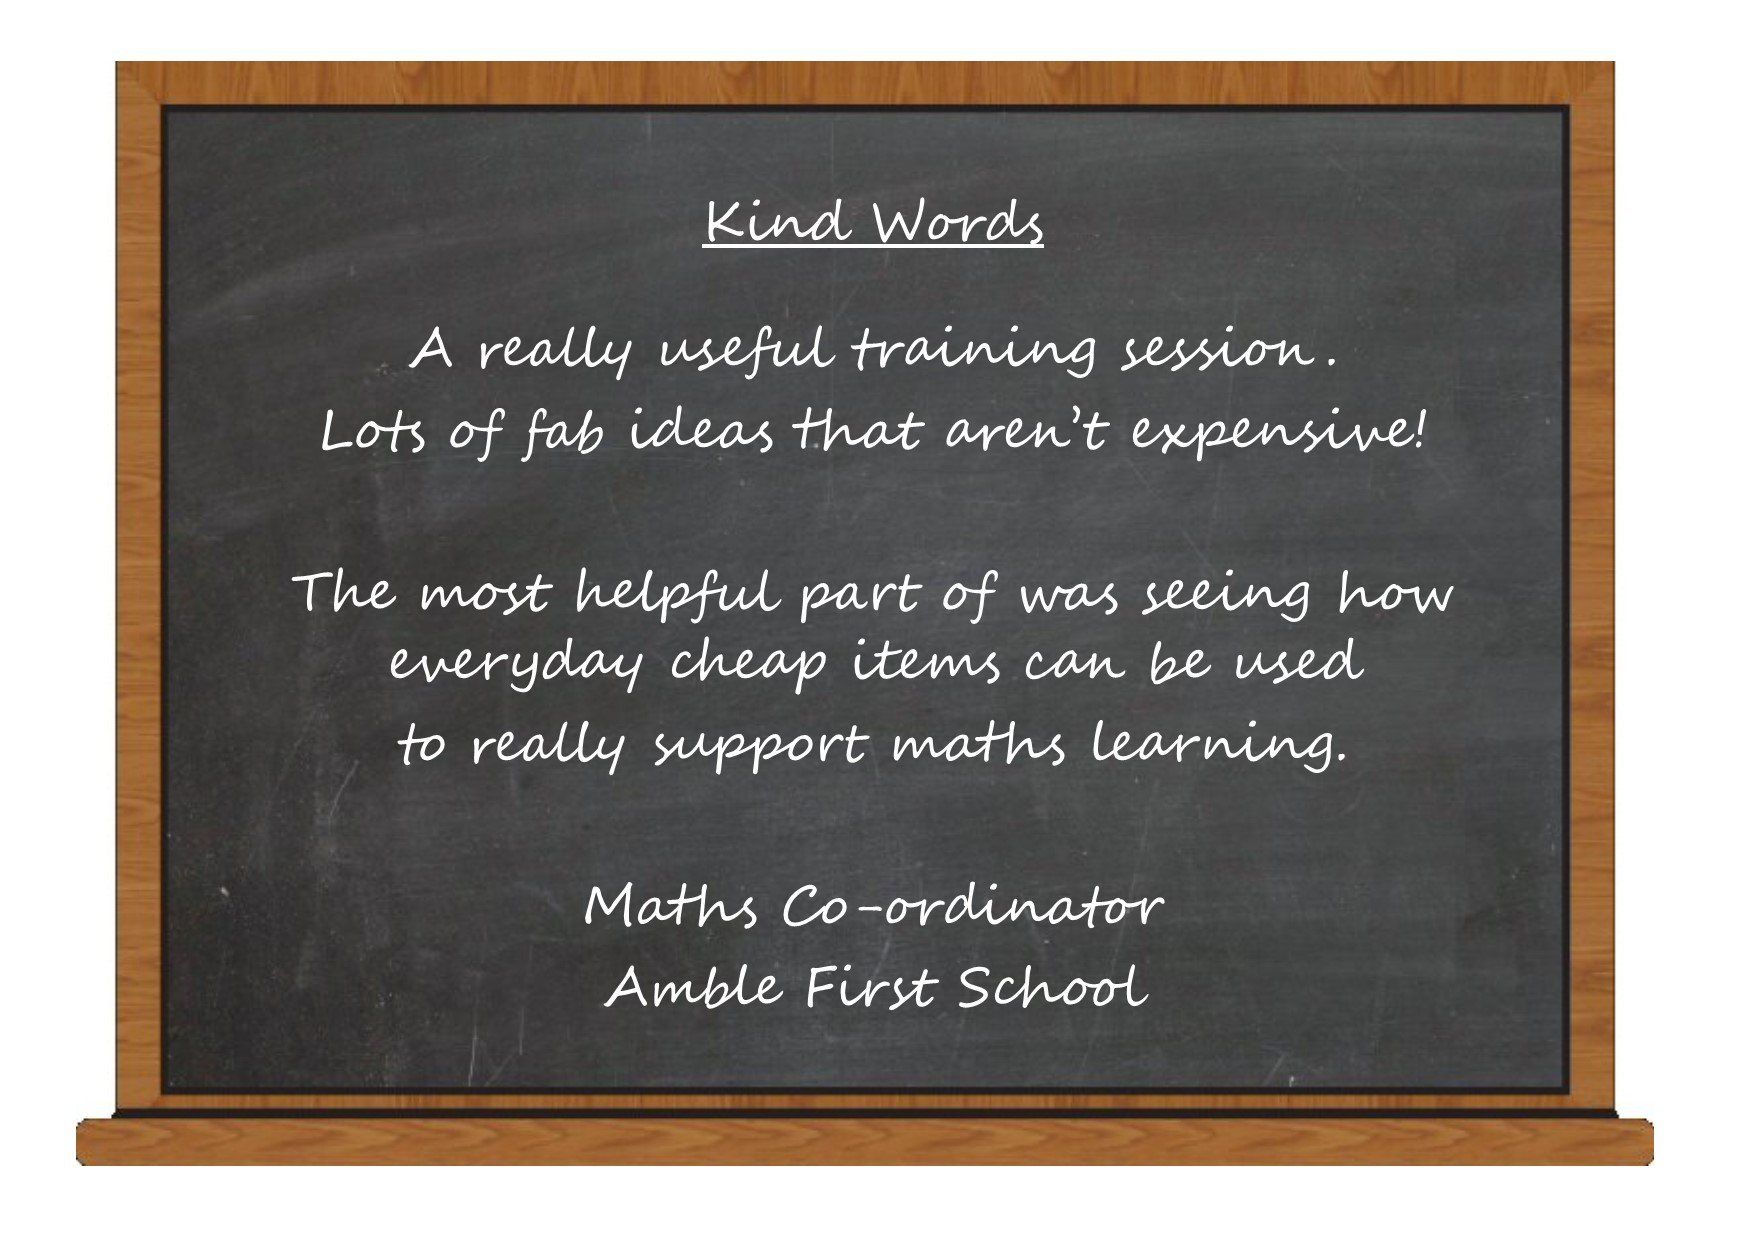 Kind Words
A really useful training session.
Lots of fab ideas that aren't expensive!
The most helpful part of was seeing how
everyday cheap items can be used
to really support maths learning.
Maths Co-ordinator
Amble First School